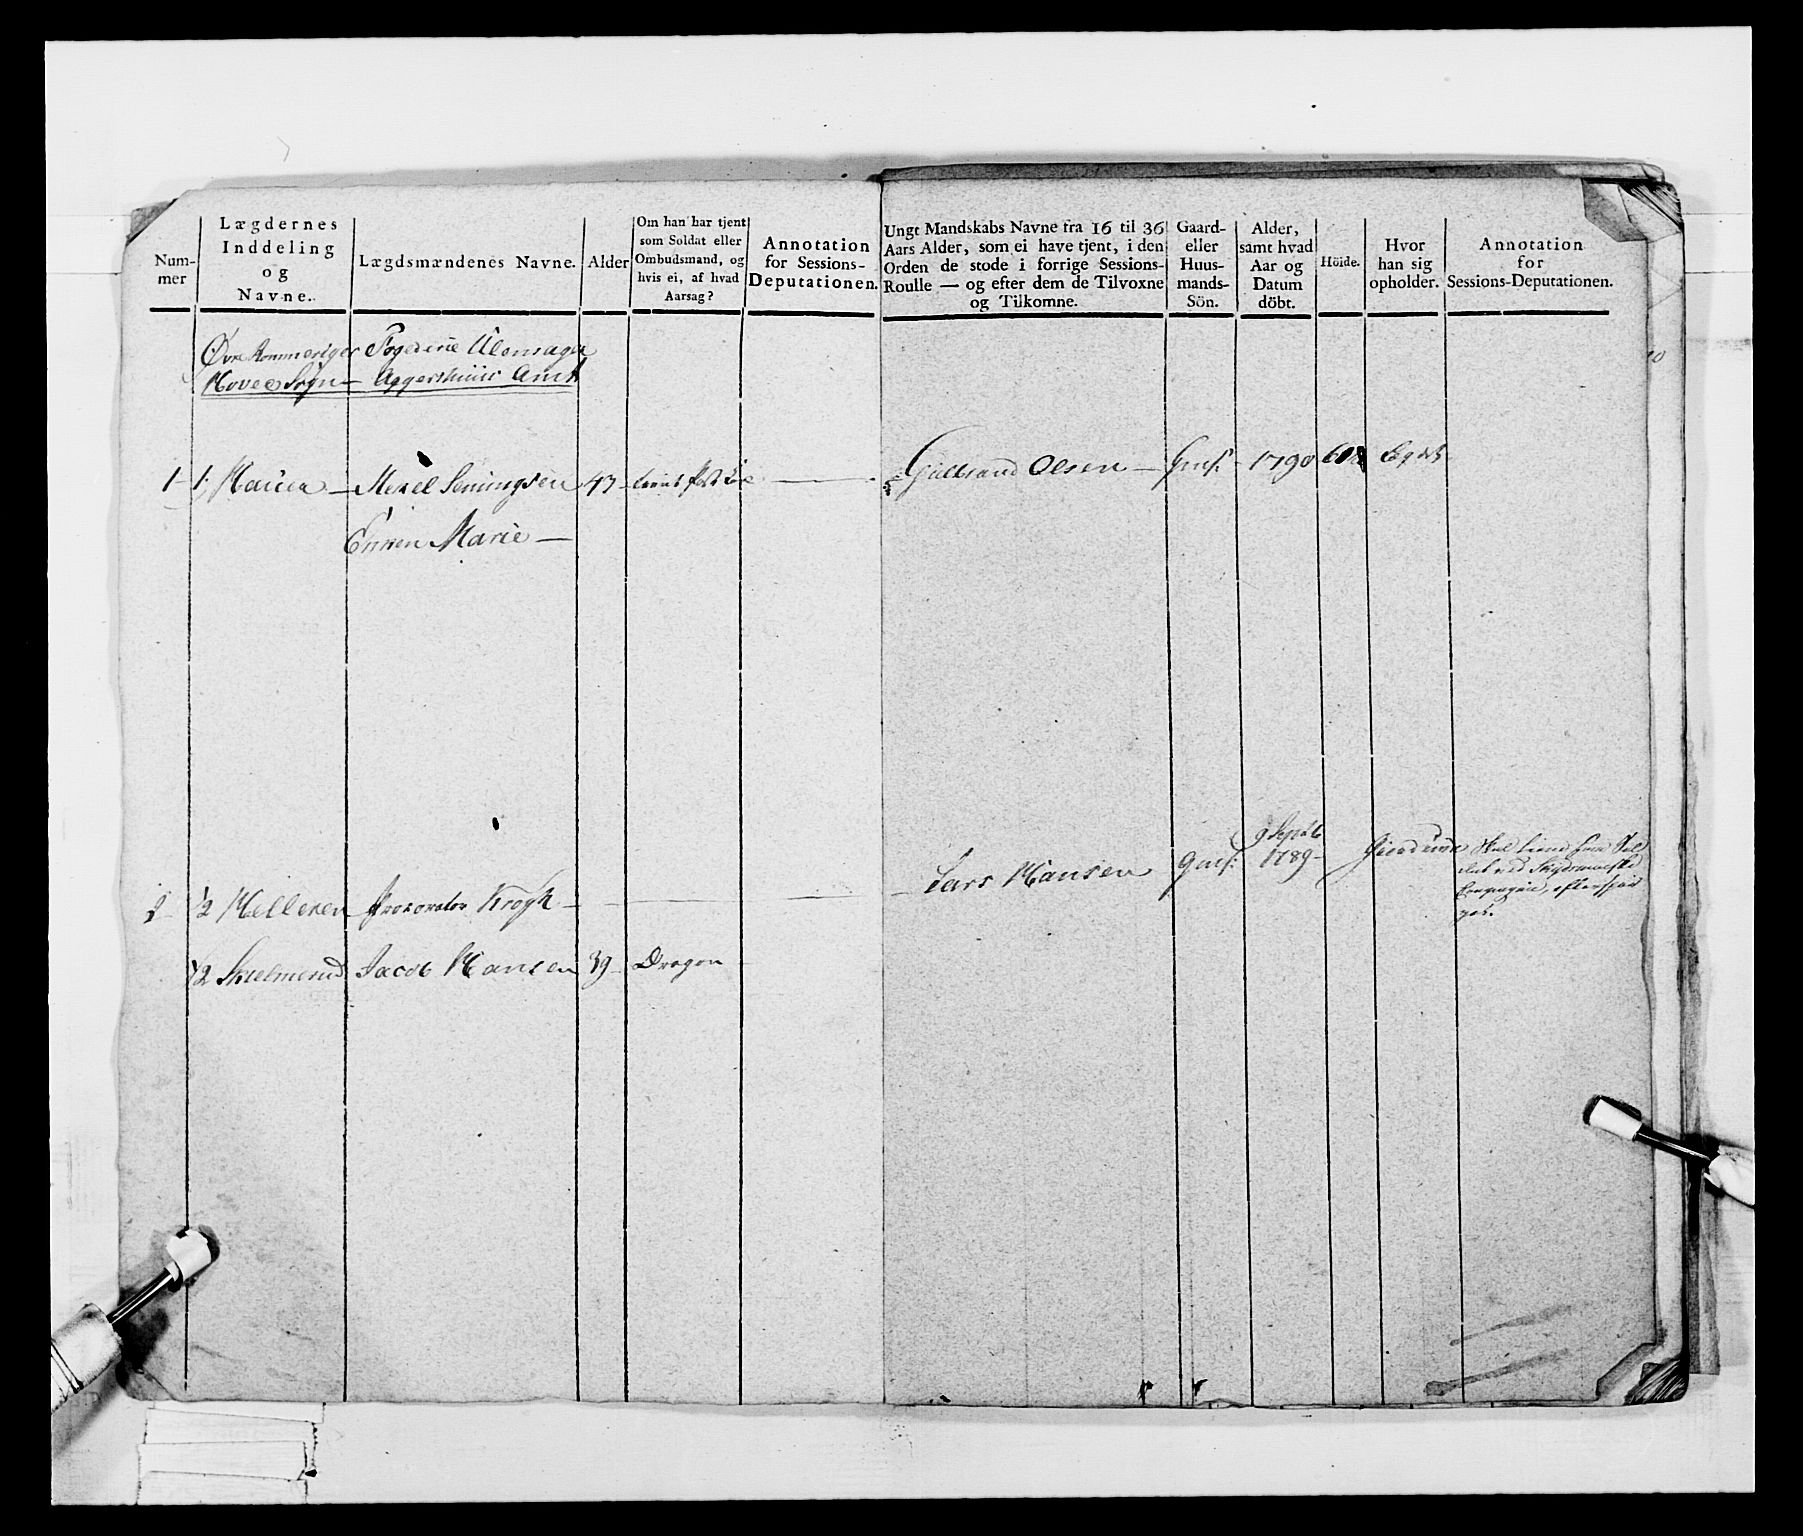 Num-
mer
Lægdernes
Inddeling
og
Navne.
Lægdsmændenes Navne.
Alder
Om han har tjent
som Soldat eller
Ombudsmand, og
hvis ei, af hvad
Aarsag?
Annotation
for Sessions-
Deputationen.
Ungt Mandskabs Navne fra 16 til 36
Aars Alder, som ei have tjent, i den
Orden de stode i forrige Sessions-
Roulle — og efter dem de Tilvoxne
og Tilkomne.
Gaard-
eller
Huus-
mands-
Sön.
Alder,
samt hvad
Aar og
Datum
döbt.
Höide.
Hvor
han sig
opholder.
Annotation
for
Sessions-Deputationen.
Øvre Rommeriger Fogderie Ulensager
Hoved Sogn — Aggershuus Amt
1 — 1, — 43 —
Enken Marie —
Gulbrand Olsen — Gms: — 1790
½ Helleren Procurator Krogh —
Lars Hansen Gms: 9 Septb 1789 —
Skal tiene som Sol
½ Skielmerud Jacob Hansen 39 — Dragon